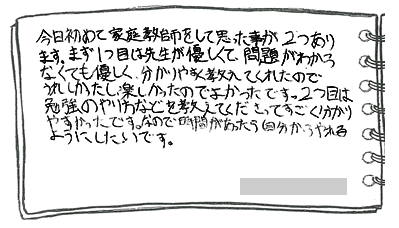 今日初めて家庭教師をして思った事が2つあり
ます。まず1つ目は先生が優しくて、問題がわから
なくても優しく、分かりやすく教えてくれたので
うれしかたし、楽しかったのでよかったです。2つ目は
勉強のやり方などを教えてくださってすごく分かり
やすかったです。なので時間があったら自分からやれる
ようにしたいです。